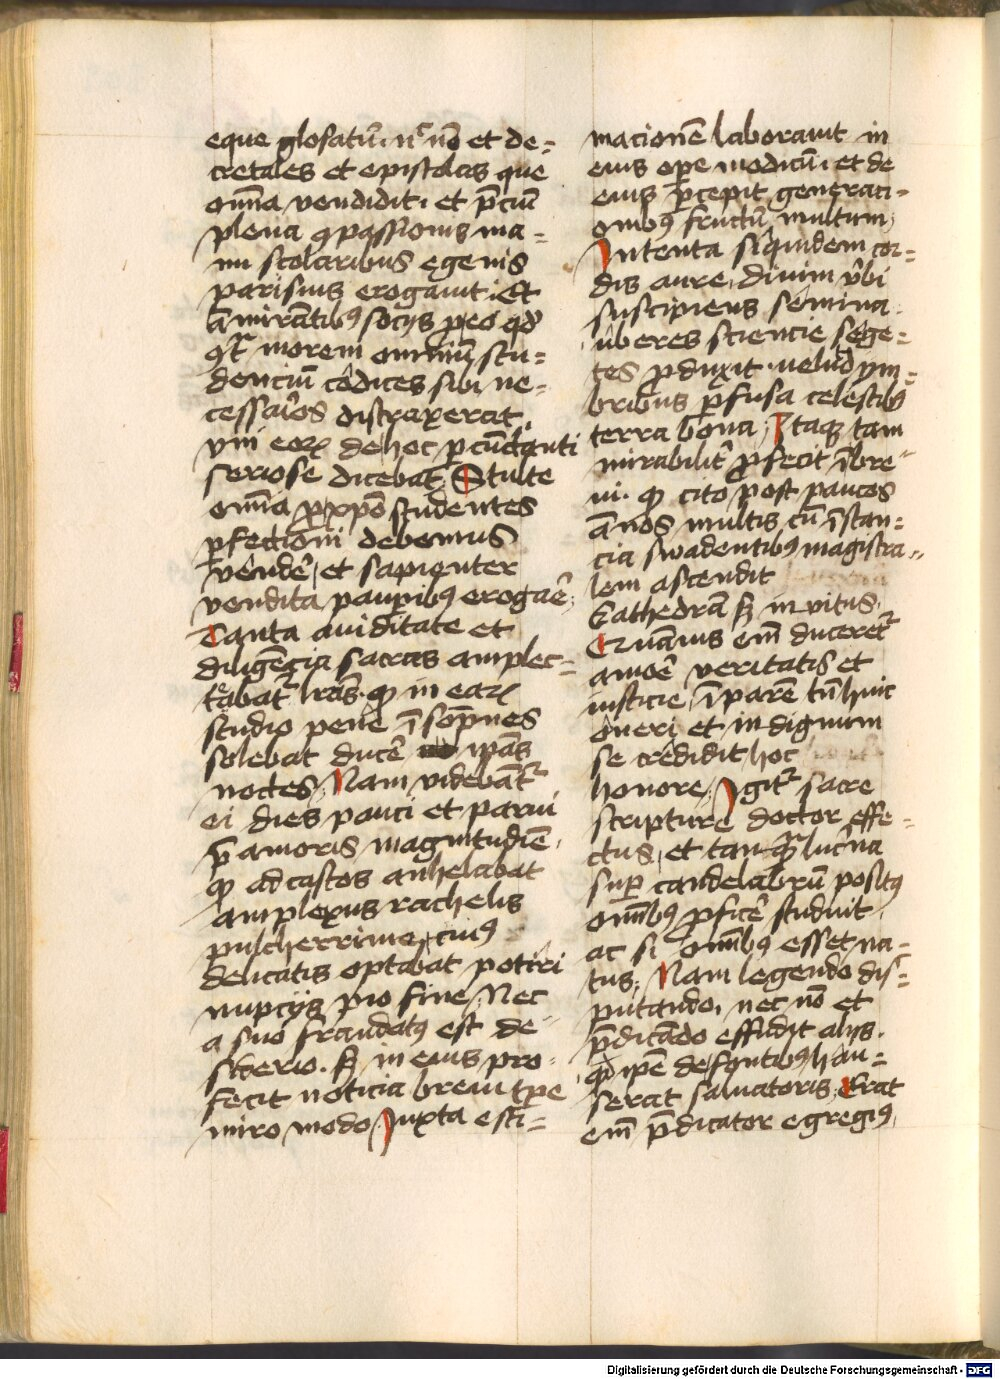 eque glosatū. nᶜ nō et de=
cretales et epistolas que
om̄ia vendidit. et p̄ciū
plena ꝯpassionis ma=
nu scolaribus egenis
parisius erogauit. Et
āmirātibꝰ socijs p eo qd̓
ꝯt̄ morem omniū stu=
denciū cōdices sibi ne=
cessarios distraxerat,
vni eoꝝ de hoc ꝑcūctanti
seriose dicebat, Stulte
om̄ia p xp̄o studentes
ꝑfectioni debemus
vendē, et sapienter
vendita paupibꝰ erogaē,
Tanta auiditate et
diligēcia sacras amplec=
tabat᷑ lrās. ꝙ in eaꝝ
studio pene ī sōpnes
solebat ducē ip̄as
noctes, Nam videbāt᷑
ei dies pauci et parui
p̄ amoris magnitudīe,
ꝙ ad castos anhelabat
amplexus rachelis
pulcherrime, cuiꝰ
delicatis optabat potiri
nupcijs pro fine, Nec
a suo fraudatꝰ est de=
siderio. sꝫ in eius pro=
fecit noticia breui tp̄e
miro modo, Juxta esti=
macionē laborauit in
eius ope modicū. et de
eius p̄cepit generaci=
onibꝰ fructū multum,
Intenta siquidem cor=
dis aure, diuini v̄bi
suscipiens semina.
vberes sciencie sege=
tes ꝓduxit. velud ym=
bribus ꝑfusa celestibꝰ
terra bona, Itaqꝫ tam
mirabilit᷑ ꝓfecit ī bre=
ui. ꝙ cito post paucos
ānos multis cū īstan=
cia swadentibꝰ magistra=
lem ascendit
Cathedrā sꝫ invitus.
Quāuis em̄ duceret᷑
amoē veritatis et
iusticie, īparē tn̄ huic
oneri et indignum
se credidit hoc
honore, Igit᷑ sacre
scripture doctor effe=
ctus, et tanꝙ lucna
sup candelabrū positꝰ
om̄ibꝰ ꝓficē studuit,
ac si om̄ibꝰ esset na=
tus, Nam legendo dis=
putando, nec nō et
p̄dicādo effudit alijs.
qd̓ ip̄e de fontibꝰ hau=
serat saluatoris, Erat
em̄ p̄dicator egregiꝰ,
Digitalisierung gefördert durch die Deutsche Forschungsgemeinschaft - DFG